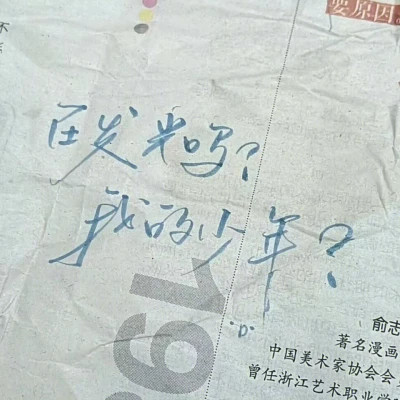 要原因
在发光吗?
我的少年?
19
俞志
著名漫画
中国美术家协会会
曾任浙江艺术职业学